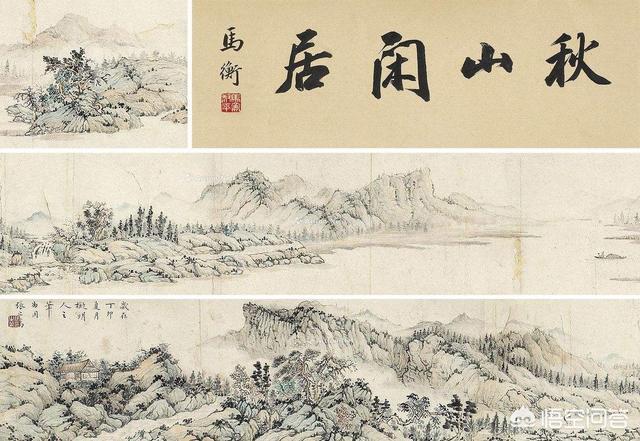 秋山閑居
馬衡
歲在
丁卯
夏月
擬明
人之
筆
悟空问答